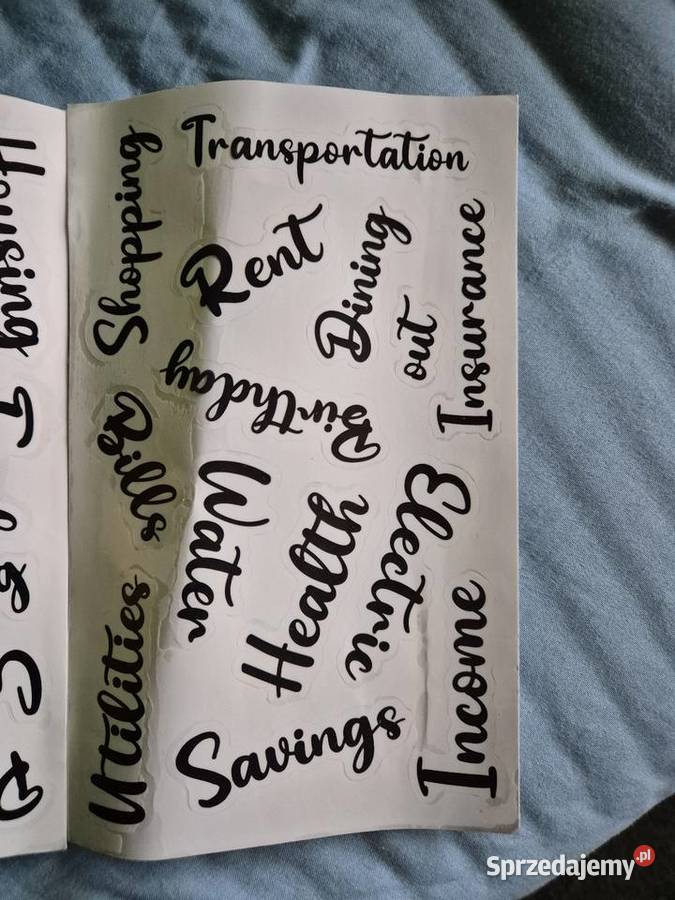 Transportation
Shopping
Rent
Dining
out
Insurance
Birthday
Bills
Water
Health
Electric
Income
Utilities
Savings
Housing
Sprzedajemy.pl